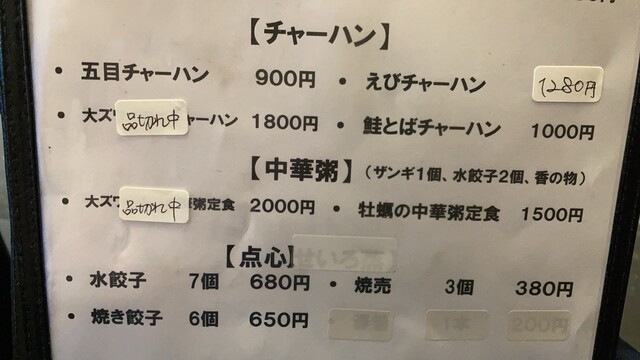 【チャーハン】
• 五目チャーハン 900円 • えびチャーハン 1280円
• 大ズワ 品切れ中 チャーハン 1800円 • 鮭とばチャーハン 1000円
【中華粥】（ザンギ1個、水餃子2個、香の物）
• 大ズワ 品切れ中 華粥定食 2000円 • 牡蠣の中華粥定食 1500円
【点心】
• 水餃子 7個 680円 • 焼売 3個 380円
• 焼き餃子 6個 650円 春巻 1本 200円